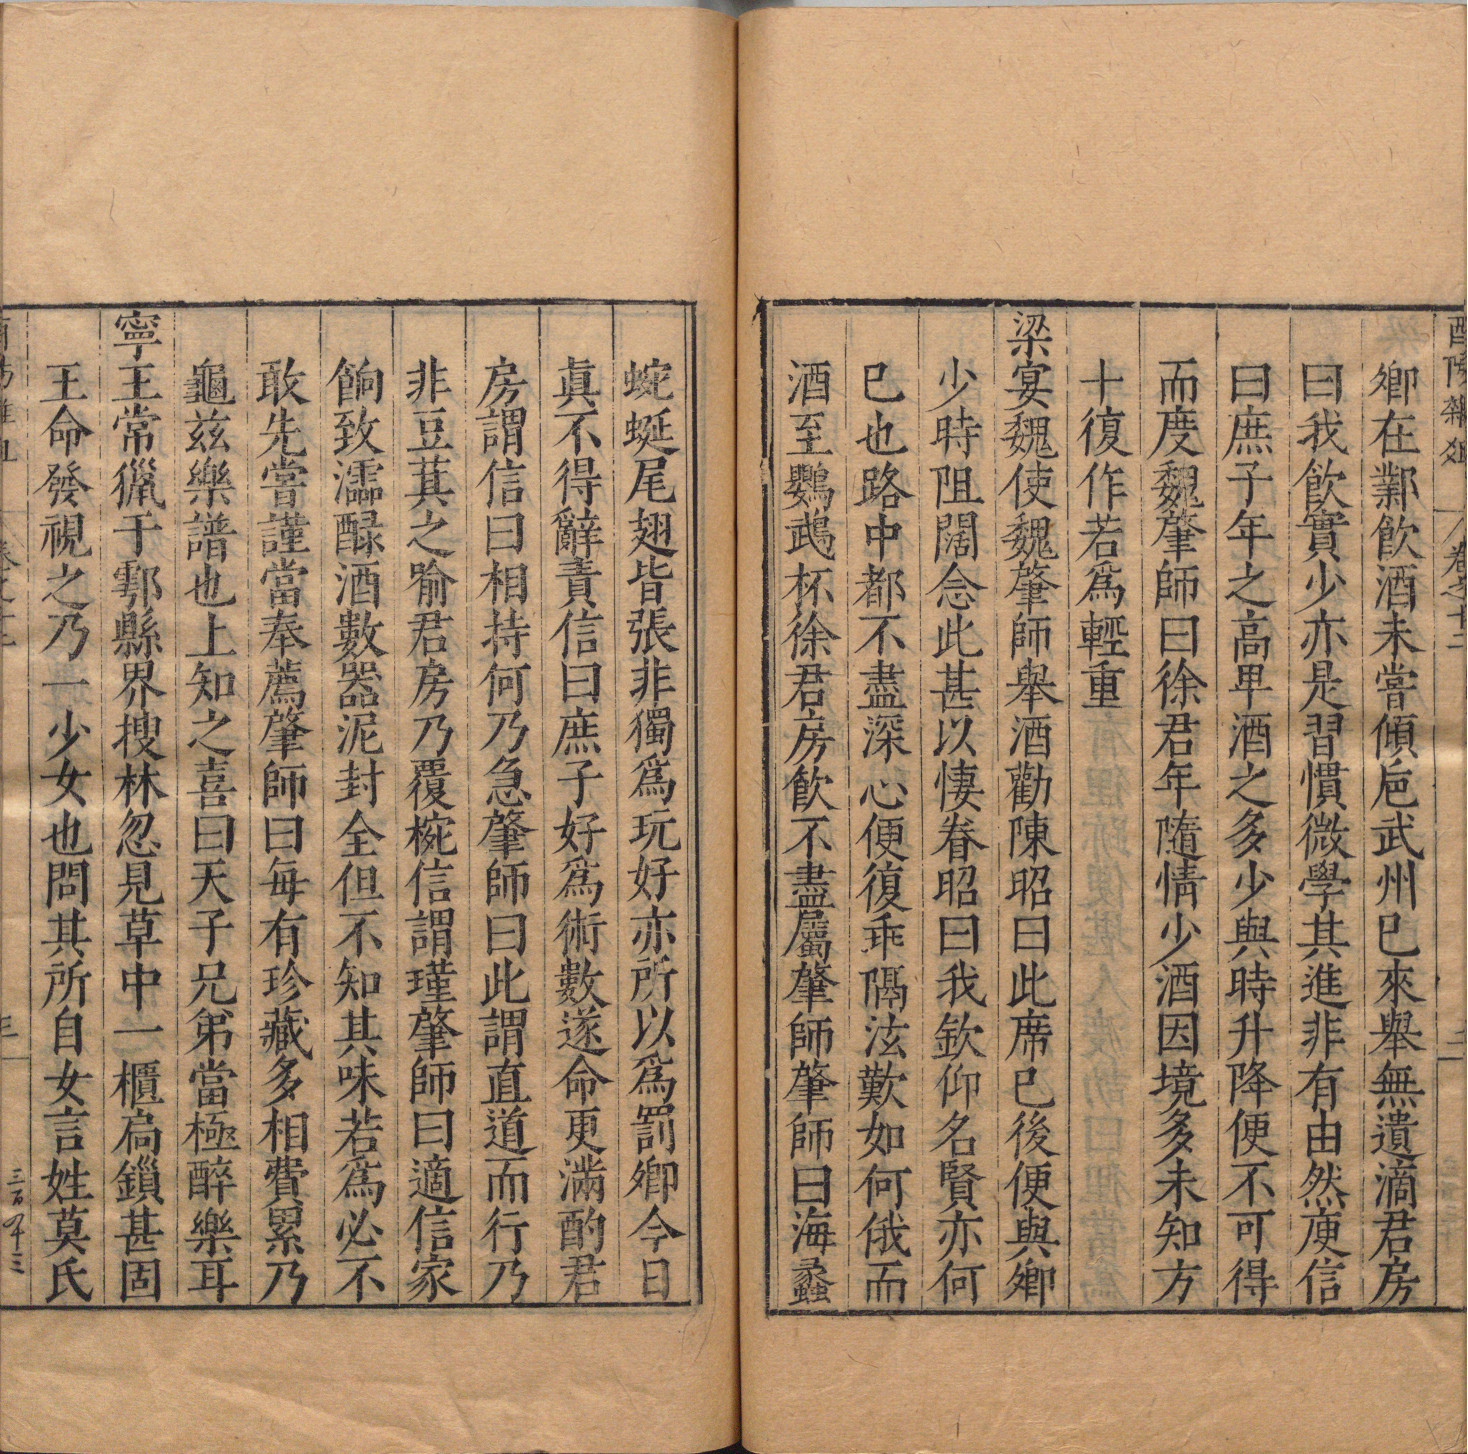 酉陽雜俎 卷之十二 二
鄉在鄴飲酒未嘗傾巵武州已來舉無遺滴君房
曰我飲實少亦是習慣微學其進非有由然庾信
曰庶子年之高卑酒之多少與時升降便不可得
而度魏肇師曰徐君年隨情少酒因境多未知方
十復作若爲輕重
梁宴魏使魏肇師舉酒勸陳昭曰此席已後便與卿
少時阻闊念此甚以悽眷昭曰我欽仰名賢亦何
已也路中都不盡深心便復乖隔泫歎如何俄而
酒至鸚鵡杯徐君房飲不盡屬肇師肇師曰海蠡
蜿蜒尾翅皆張非獨爲玩好亦所以爲罰卿今日
眞不得辭責信曰庶子好爲術數遂命更滿酌君
房謂信曰相持何乃急肇師曰此謂直道而行乃
非豆萁之喻君房乃覆椀信謂瑾肇師曰適信家
餉致濡醁酒數器泥封全但不知其味若爲必不
敢先嘗謹當奉薦肇師曰每有珍藏多相費累乃
龜茲樂譜也上知之喜曰天子兄弟當極醉樂耳
寧王常獵于鄠縣界搜林忽見草中一櫃扃鎖甚固
王命發視之乃一少女也問其所自女言姓莫氏
三百四十三